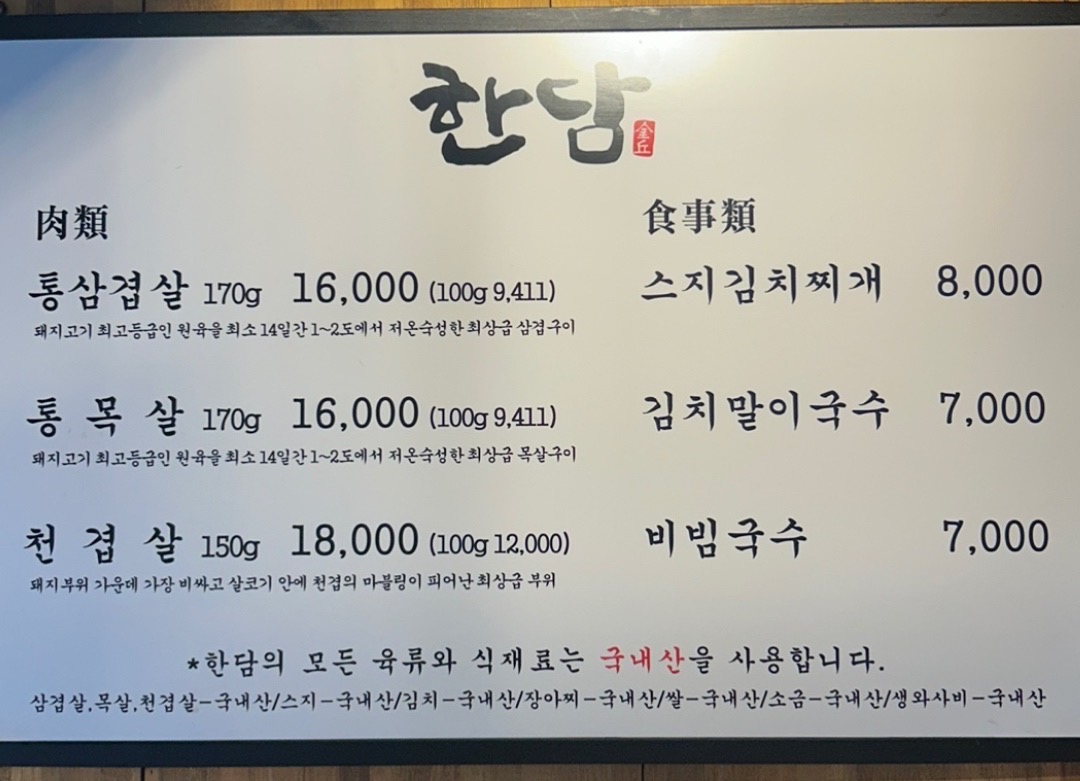 한담
金丘
肉類
통삼겹살 170g 16,000 (100g 9,411)
돼지고기 최고등급인 원육을 최소 14일간 1~2도에서 저온숙성한 최상급 삼겹구이
통 목 살 170g 16,000 (100g 9,411)
돼지고기 최고등급인 원육을 최소 14일간 1~2도에서 저온숙성한 최상급 목살구이
천 겹 살 150g 18,000 (100g 12,000)
돼지부위 가운데 가장 비싸고 살코기 안에 천겹의 마블링이 피어난 최상급 부위
食事類
스지김치찌개 8,000
김치말이국수 7,000
비빔국수 7,000
*한담의 모든 육류와 식재료는 국내산을 사용합니다.
삼겹살,목살,천겹살-국내산/스지-국내산/김치-국내산/장아찌-국내산/쌀-국내산/소금-국내산/생와사비-국내산